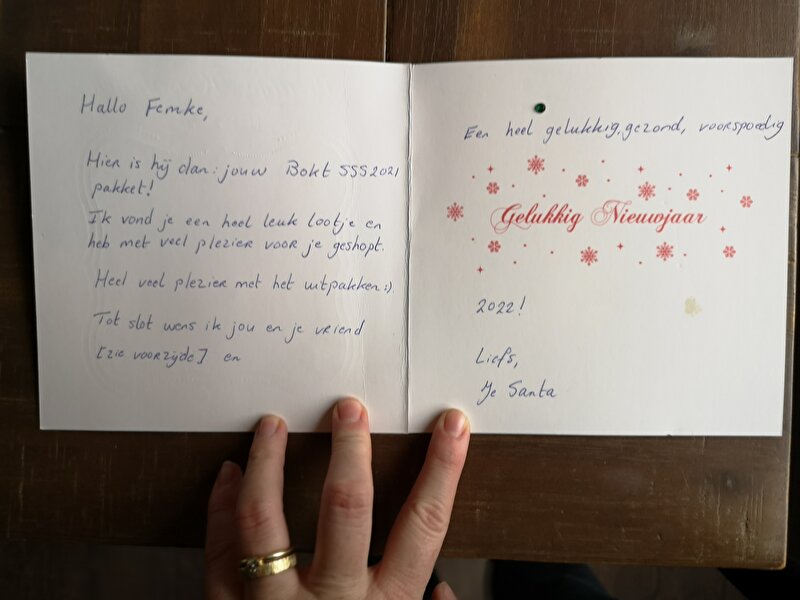 Hallo Femke,
Hier is hij dan: jouw Bokt SSS2021
pakket!
Ik vond je een heel leuk lootje en
heb met veel plezier voor je geshopt.
Heel veel plezier met het uitpakken:).
Tot slot wens ik jou en je vriend
[zie voorzijde] en
Een heel gelukkig, gezond, voorspoedig
Gelukkig Nieuwjaar
2022!
Liefs,
Je Santa